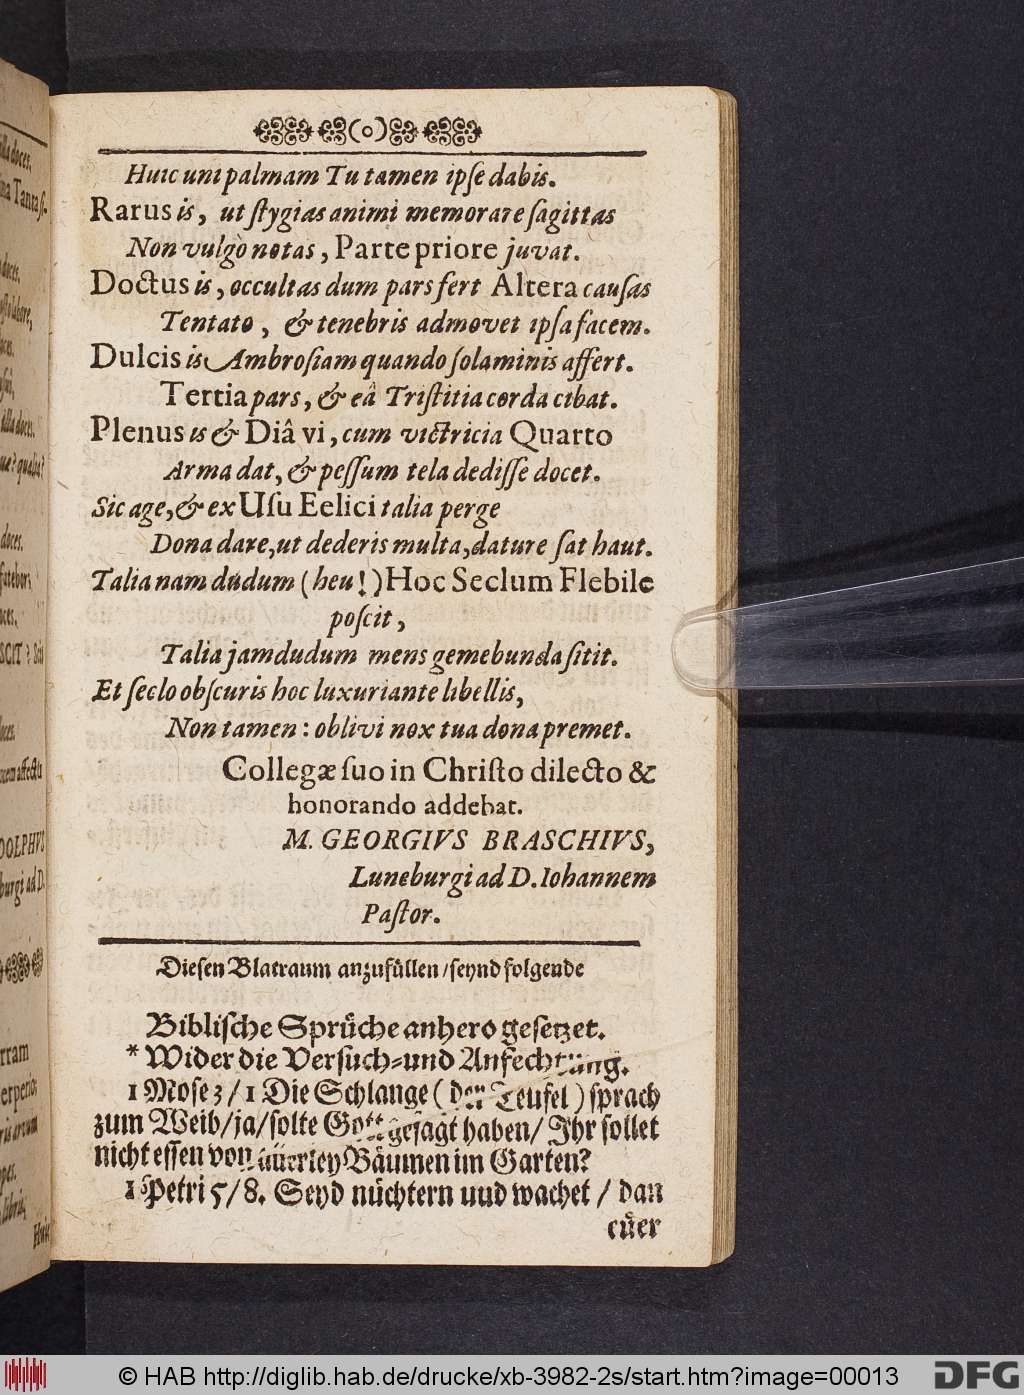 Huic uni palmam Tu tamen ipſe dabis.
Rarus is, ut ſtygias animi memorare ſagittas
Non vulgò notas, Parte priore juvat.
Doctus is, occultas dum pars fert Altera cauſas
Tentato, & tenebris admovet ipſa facem.
Dulcis is Ambroſiam quando ſolaminis affert.
Tertia pars, & eâ Triſtitia corda cibat.
Plenus is & Diâ vi, cum victricia Quarto
Arma dat, & peſſum tela dediſſe docet.
Sic age, & ex Uſu Eelici talia perge
Dona dare, ut dederis multa, dature ſat haut.
Talia nam dudum (heu!) Hoc Seclum Flebile
poſcit,
Talia jamdudum mens gemebunda ſitit.
Et ſeclo obſcuris hoc luxuriante libellis,
Non tamen: oblivi nox tua dona premet.
Collegæ ſuo in Chriſto dilecto &
honorando addebat.
M. GEORGIVS BRASCHIVS,
Luneburgi ad D. Iohannem
Paſtor.
Dieſen Blatraum anzufüllen / ſeynd folgende
Bibliſche Sprüche anhero geſetzet.
* Wider die Verſuch-und Anfechtung.
1 Moſe 3 / 1 Die Schlange (der Teufel) ſprach
zum Weib / ja / ſolte Gott geſagt haben / Ihr ſollet
nicht eſſen von Bäumen im Garten?
1 Petri 5 / 8. Seyd nüchtern und wachet / dan
eüer
© HAB http://diglib.hab.de/drucke/xb-3982-2s/start.htm?image=00013
DFG